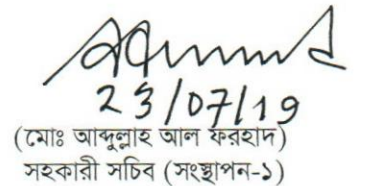 23/07/19
(মোঃ আব্দুল্লাহ আল ফরহাদ)
সহকারী সচিব (সংস্থাপন-১)